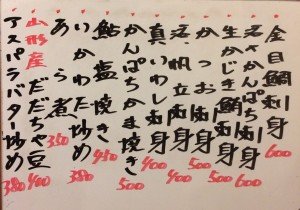 金目鯛刺身 600
かんぱち刺身 600
生かじき鮪刺身 500
かつお刺身
活帆立刺身
真いわし刺身 400
かんぱちかま焼き 500
鮎塩焼き 450
いかわた炒め
あら煮 350
山形産だだちゃ豆 400
アスパラバター炒め 380